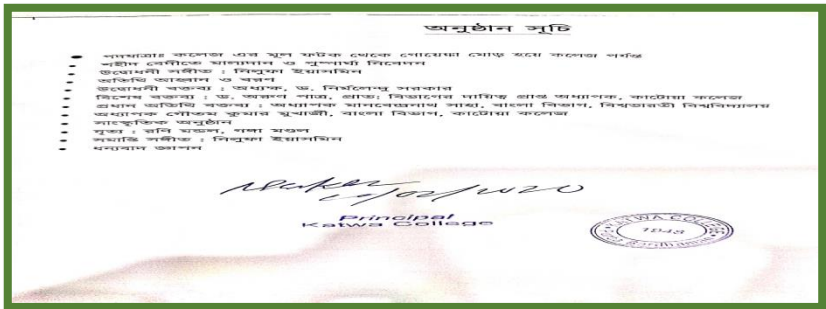 অনুষ্ঠান সূচি
পদযাত্রাঃ কলেজ এর মূল ফটক থেকে গোয়েঙ্কা মোড় হয়ে কলেজ পর্যন্ত
শহীদ বেদীতে মাল্যদান ও পুষ্পার্ঘ্য নিবেদন
উদ্বোধনী সঙ্গীত : নিলুফা ইয়াসমিন
অতিথি আহ্বান ও বরণ
উদ্বোধনী বক্তব্য : অধ্যক্ষ, ড. নির্মলেন্দু সরকার
বিশেষ বক্তব্য : ড. অরুণ পাত্র, প্রাতঃ বিভাগের দায়িত্ব প্রাপ্ত অধ্যাপক, কাটোয়া কলেজ
প্রধান অতিথি বক্তব্য : অধ্যাপক মানবেন্দ্রনাথ সাহা, বাংলা বিভাগ, বিশ্বভারতী বিশ্ববিদ্যালয়
অধ্যাপক গৌতম কুমার মুখার্জী, বাংলা বিভাগ, কাটোয়া কলেজ
সাংস্কৃতিক অনুষ্ঠান
নৃত্য : রনি মন্ডল, গঙ্গা মণ্ডল
সমাপ্তি সঙ্গীত : নিলুফা ইয়াসমিন
ধন্যবাদ জ্ঞাপন
Principal
Katwa College
KATWA COLLEGE
1948